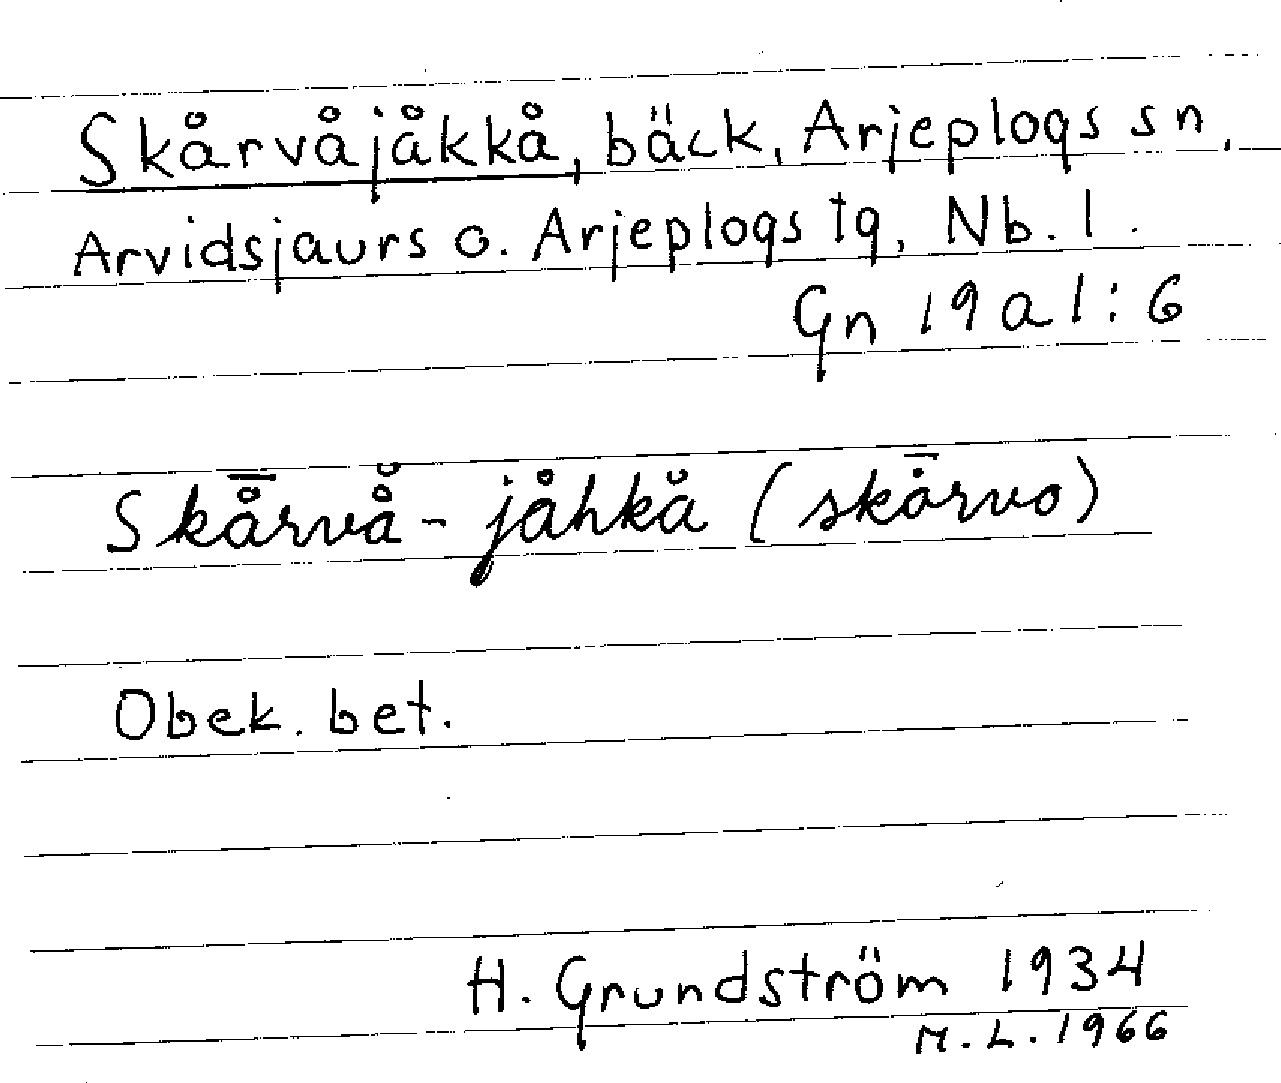 Skårvåjåkkå, bäck, Arjeplogs sn,
Arvidsjaurs o. Arjeplogs tg, Nb. l.
Gn 19 a 1:6
Skå̄rvå̆-jåhkå̆ (skǡrvo)
Obek. bet.
H. Grundström 1934
M. L. 1966